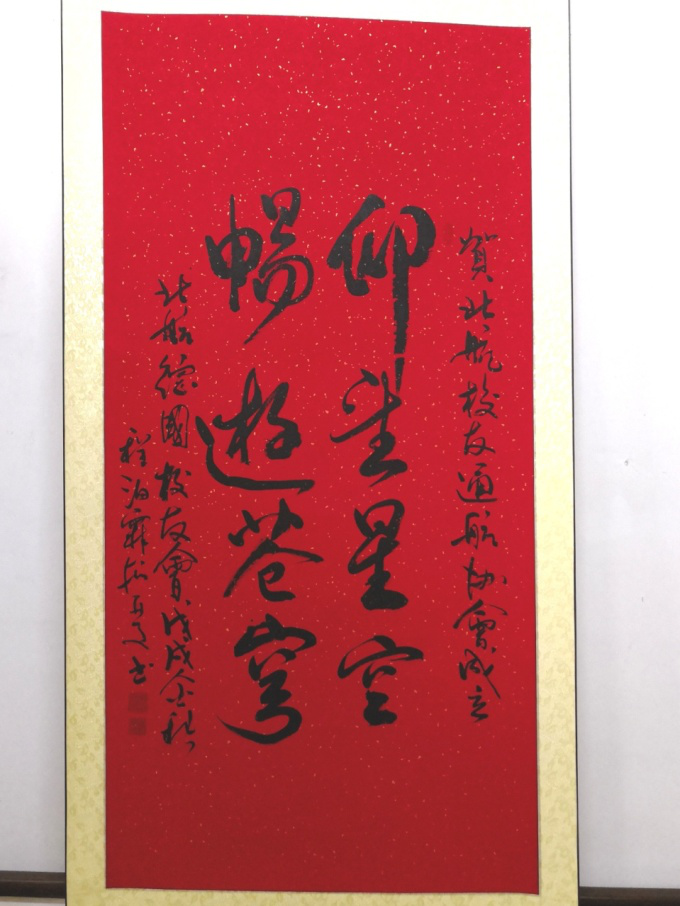 賀北航校友通航協會成立
仰望星空
暢遊苍穹
北航德國校友會戊戌金秋
程泊霖 书